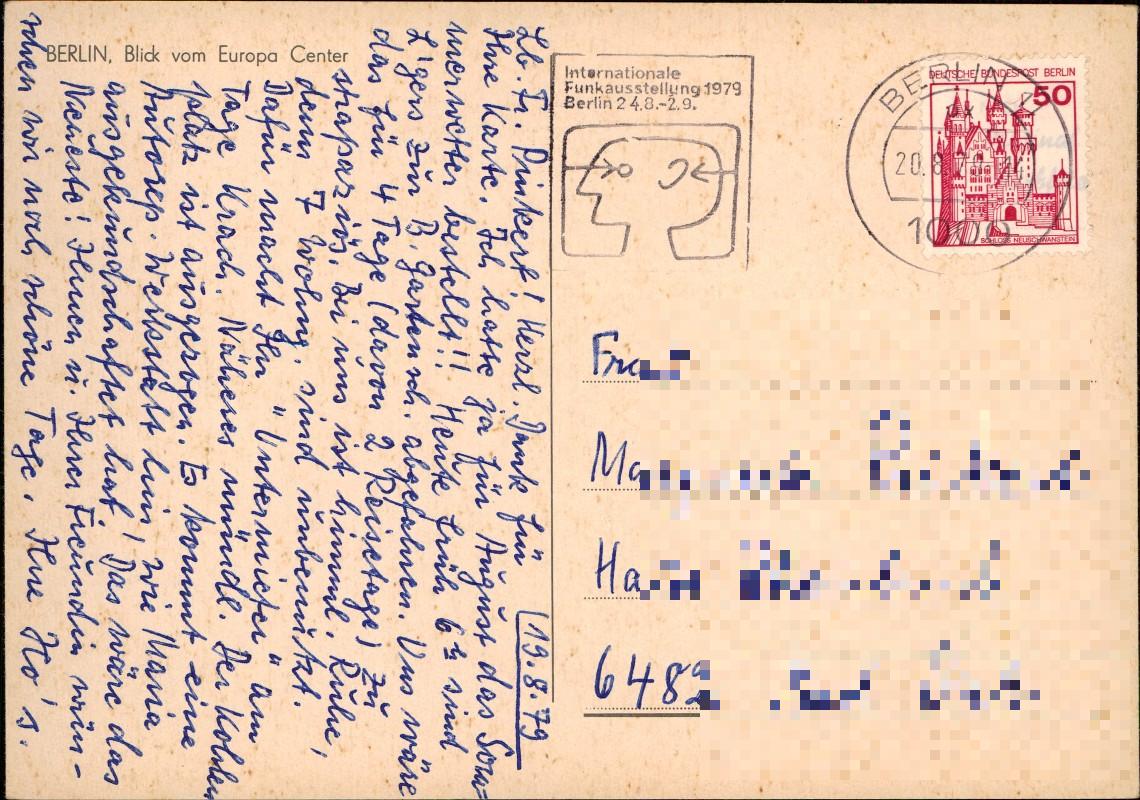 BERLIN, Blick vom Europa Center
19.8.79
Lb. Fr. Dinkert! Herzl. Dank für
Ihre Karte. Ich hatte ja für August das Som-
merwetter bestellt!! Heute früh 6h sind
L'gers zur B. Gartensch. abgefahren. Uns wäre
das für 4 Tage (davon 2 Reisetage) zu
strapaziös. Bei uns ist himml. Ruhe,
denn 7 Wohng. sind unbenützt.
Dafür macht Ihr "Untermieter" am
Tage Krach. Näheres mündl. Der Kohlen
platz ist ausgezogen. Es kommt eine
Autorep. Werkstatt hin, wie Maria
ausgekundschaftet hat! Das wäre das
Neueste! Ihnen u. Ihrer Freundin wün-
schen wir noch schöne Tage. Ihre Ho's.
Internationale
Funkausstellung 1979
Berlin 24.8.-2.9.
BERLIN
20.8.79
1000
DEUTSCHE BUNDESPOST BERLIN
50
SCHLOSS NEUSCHWANSTEIN
Frau
Ma
Ha
6482